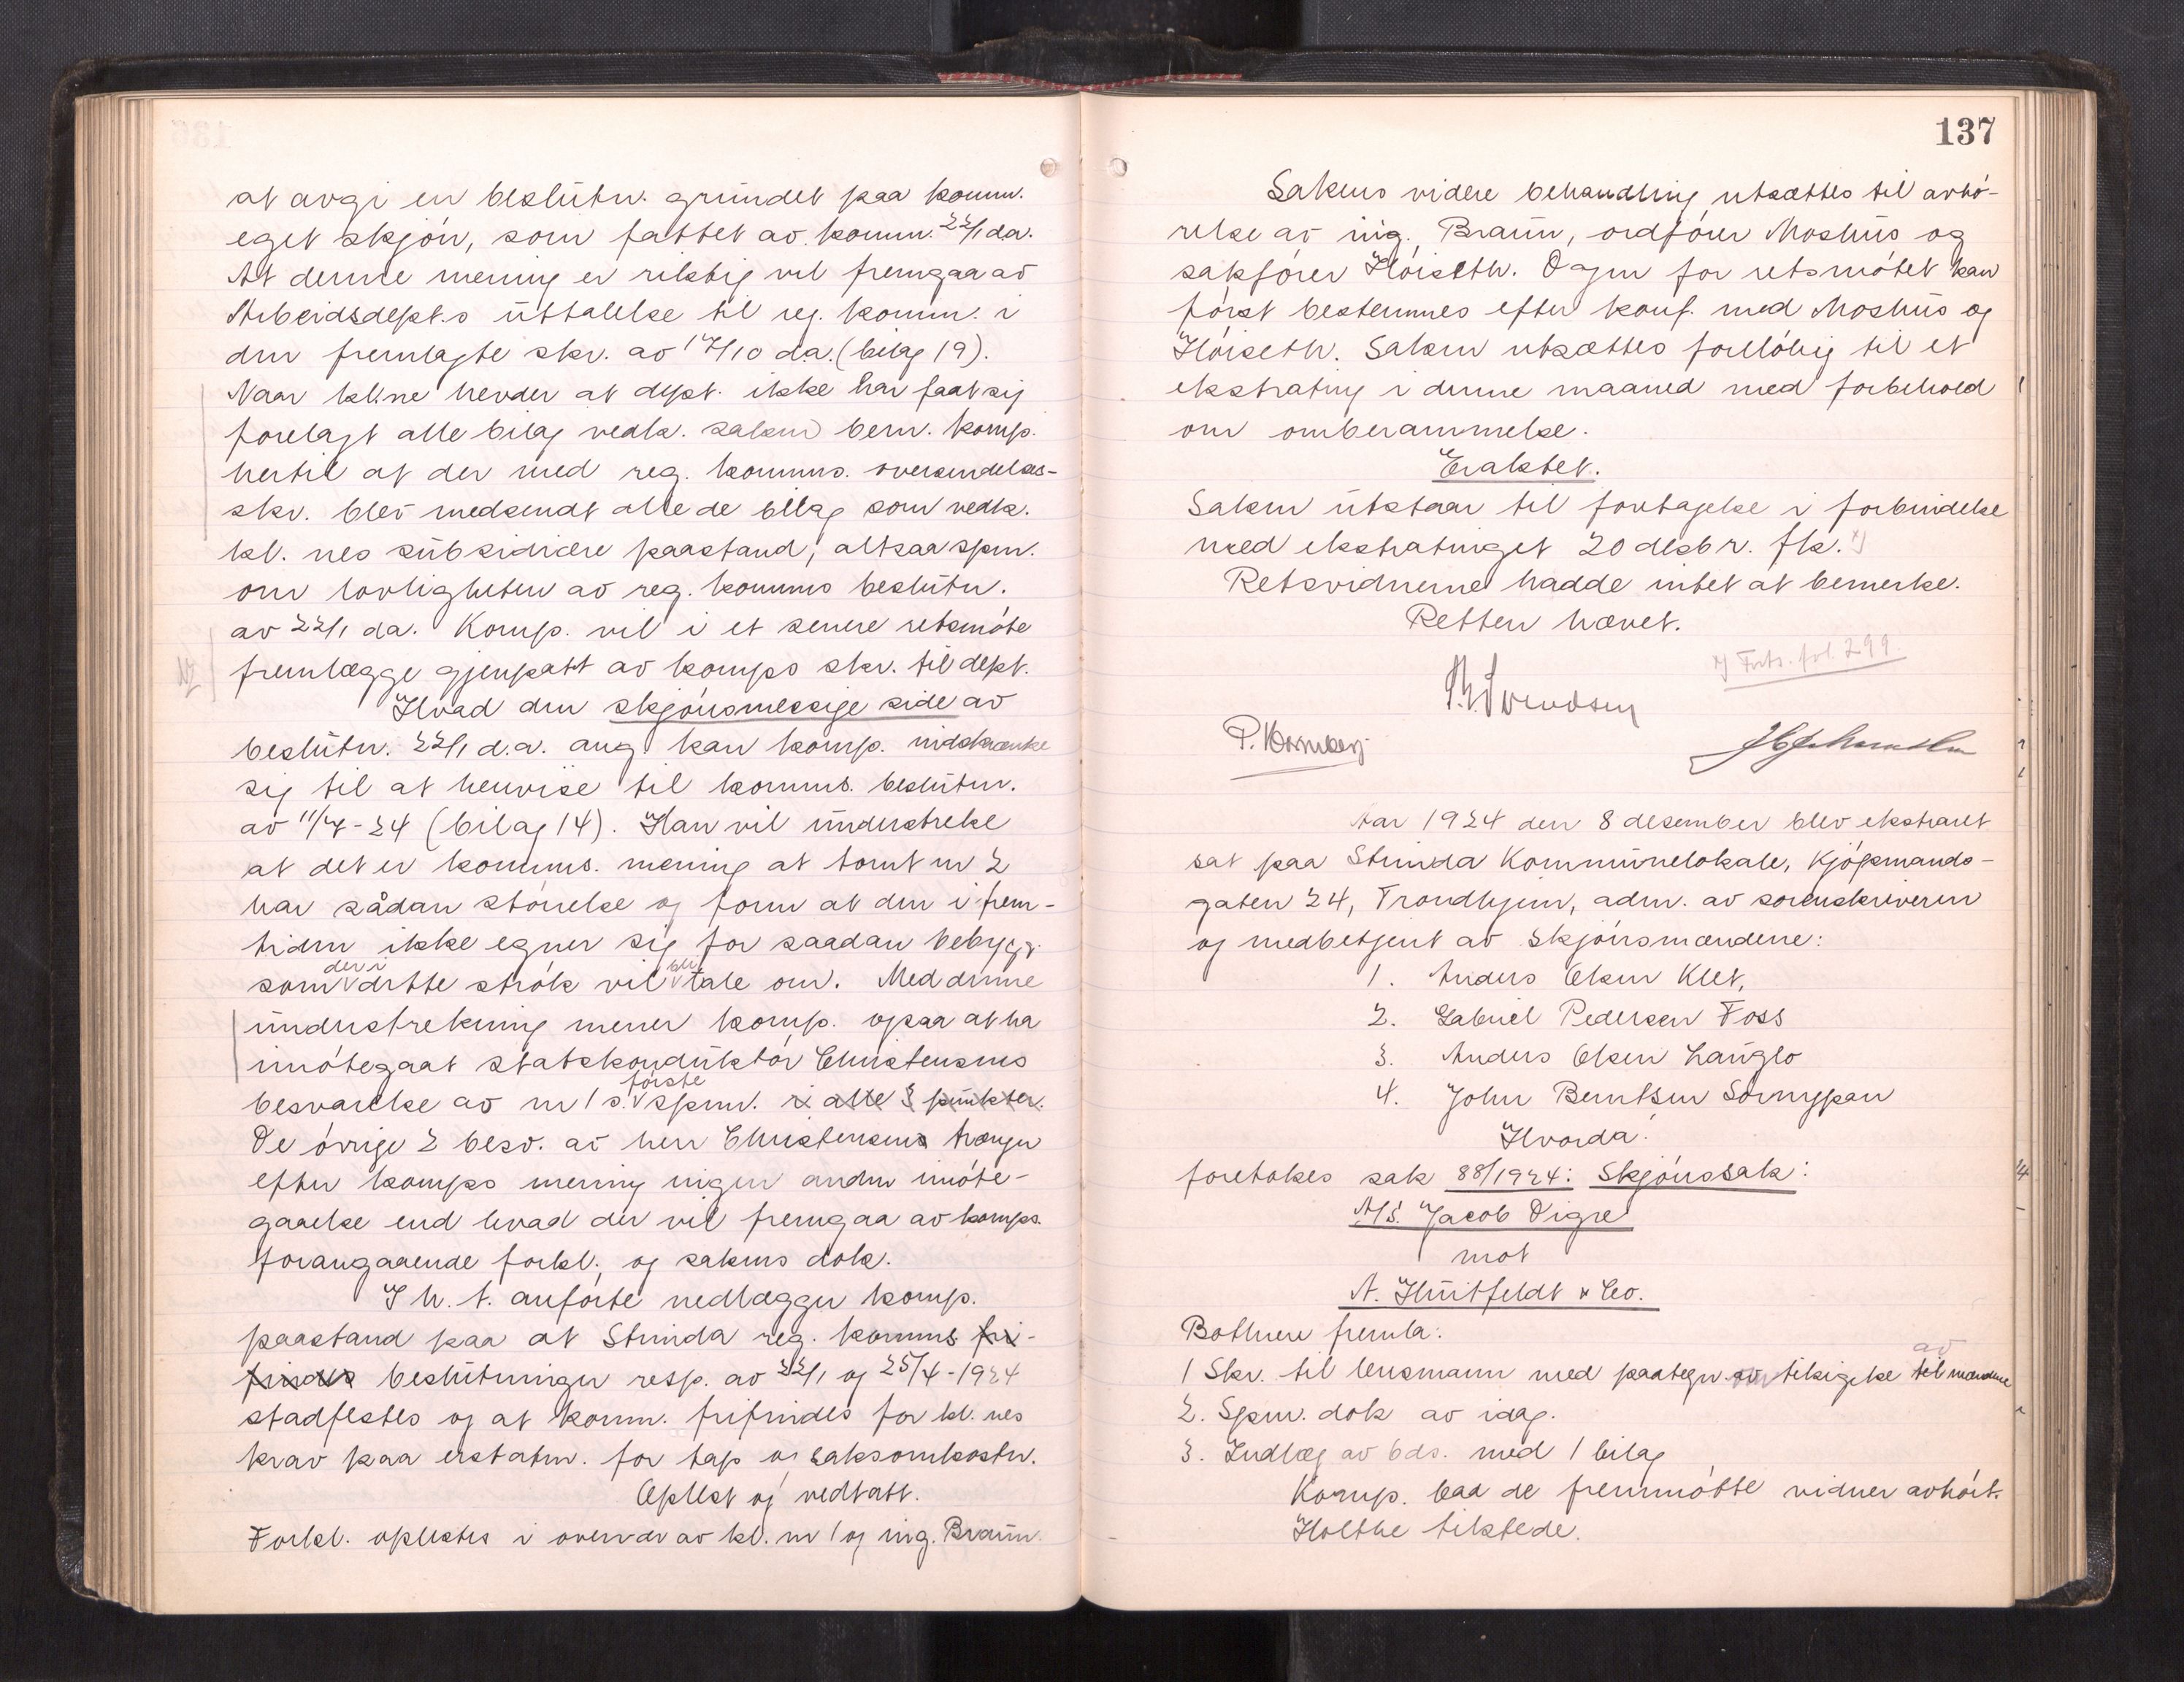 at avgi en beslutn. grundet paa komm.
eget skjøn, som fattet av komm. 22/1 da.
At denne mening er riktig vil fremgaa av
Arbeidsdept.s uttalelse til reg. komm. i
den fremlagte skr. av 17/10 d.a. (bilag 19).
Naar kl.ne hevder at dept. ikke har faat sig
forelagt alle bilag vedk. saken bem. komp.
hertil at der med reg. komms. oversendelses-
skr. blev medsendt alle de bilag som vedk.
kl. nes subsidiære paastand, altsaa spm.
om lovligheten av reg. komms beslutn.
av 22/1 da. Komp. vil i et senere retsmøte
fremlægge gjenpatt av komps skr. til dept.
Hvad den skjønsmessige side av
beslutn. 22/1 d.a. ang. kan komp. indskrænke
sig til at henvise til komms. beslutn.
av 11/4-24 (bilag 14). Han vil understreke
at det er komms. mening at tomt nr 2
har sådan størrelse og form at den i frem-
tiden ikke egner sig for saadan bebygg.
som der i dette strøk vil bli tale om. Med denne
understrekning mener komp. ogsaa at ha
imøtegaat statskonduktør Christensens
besvarelse av nr 1 s. første spm. i alle 3 punkter.
De øvrige 2 besv. av herr Christensens trænger
efter komps mening ingen anden imøte-
gaaelse end hvad der vil fremgaa av komps.
forangaaende forkl., og sakens dok.
I h. t. anførte nedlægger komp.
paastand paa at Strinda reg. komms fri-
findes beslutninger resp. av 22/1 og 25/4-1924
stadfestes og at komm. frifindes for kl. nes
krav paa erstatn. for tap og saksomkostn.
Oplest og vedtatt.
Forkl. oplestes i overvær av kl. nr 1 og ing. Braün.
137
Sakens videre behandling utsættes til avhø-
relse av ing. Braün, ordfører Moshus og
sakfører Høiseth. Dagen for retsmøtet kan
først bestemmes efter konf. med Moshus og
Høiseth. Saken utsættes foreløbig til et
ekstrating i denne maaned med forbehold
om omberammelse.
Eraktet.
Saken utstaar til foretagelse i forbindelse
med ekstratinget 20 desbr. fk.
Retsvidnerne hadde intet at bemerke.
Retten hævet.
Forts. fol. 299.
Aar 1924 den 8 desember blev ekstraret
sat paa Strinda Kommunelokale, Kjøpmands-
gaten 24, Trondhjem, adm. av sorenskriveren
og medbetjent av skjønsmændene:
1. Anders Olsen Klet,
2. Gabriel Pedersen Foss
3. Anders Olsen Langlo
4. John Berntsen Sørnypan
Hvorda:
foretokes sak 88/1924: Skjønssak:
A/S. Jacob Digre
mot
A. Huitfeldt & Co.
Bothnere fremla:
1 Skr. til lensmann med paategn. om tilsigelse til av mændene
2. Spm. dok av idag.
3. Indlæg av s.d. med 1 bilag
Komp. bad de fremmøtte vidner avhørt.
Holthe tilstede.